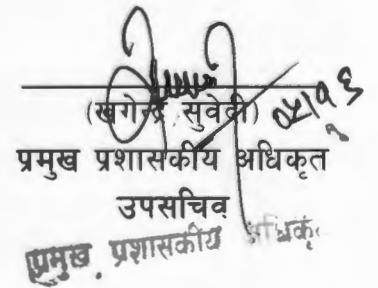 (खगेन्द्र सुवेदी)
प्रमुख प्रशासकीय अधिकृत
उपसचिव
प्रमुख प्रशासकीय